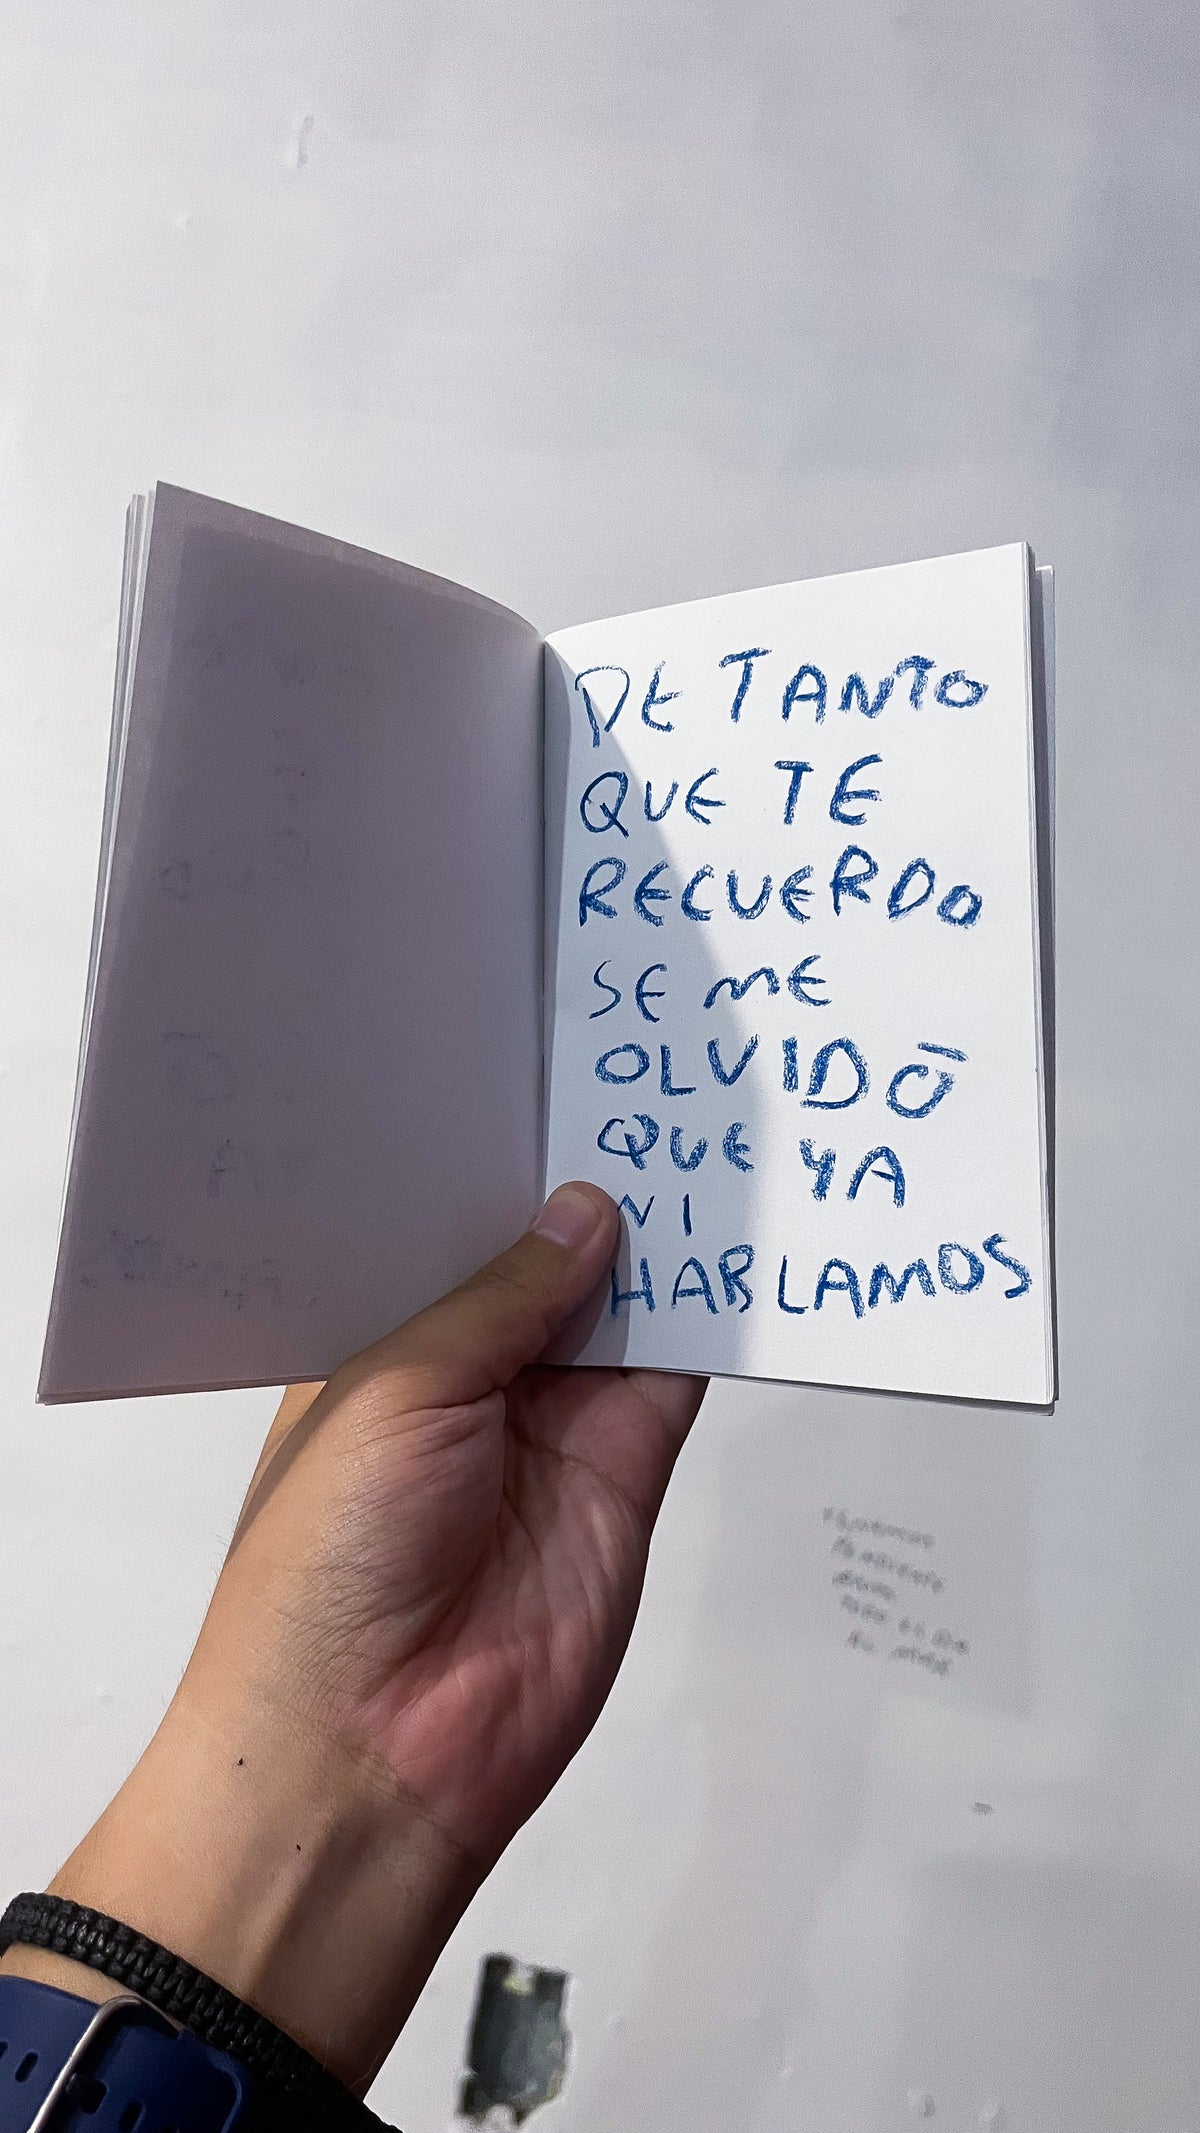 DE TANTO
QUE TE
RECUERDO
SE ME
OLVIDÓ
QUE YA
NI
HABLAMOS